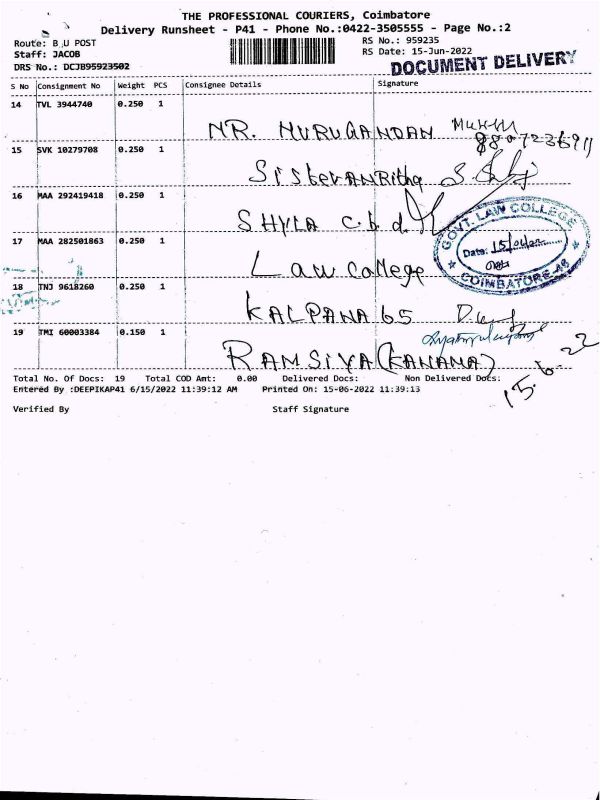 THE PROFESSIONAL COURIERS, Coimbatore
Delivery Runsheet - P41 - Phone No.:0422-3505555 - Page No.:2
Route: B_U POST
RS No.: 959235
Staff: JACOB
RS Date: 15-Jun-2022
DRS No.: DCJB95923502
DOCUMENT DELIVERY
S No Consignment No Weight PCS Consignee Details Signature
14 TVL 3944740 0.250 1
MR. MURUGANDAN
15 SVK 10279708 0.250 1
16 MAA 292419418 0.250 1
SHYLA c.b.d
17 MAA 282501863 0.250 1
Law College
GOVT. LAW COLLEGE
Date:
COIMBATORE-46
18 TNJ 9618260 0.250 1
KALPANA 65
19 TMI 60003384 0.150 1
RAMSIYA (KANAMA)
15.6.22
Total No. Of Docs: 19 Total COD Amt: 0.00 Delivered Docs: Non Delivered Docs:
Entered By :DEEPIKAP41 6/15/2022 11:39:12 AM Printed On: 15-06-2022 11:39:13
Verified By Staff Signature